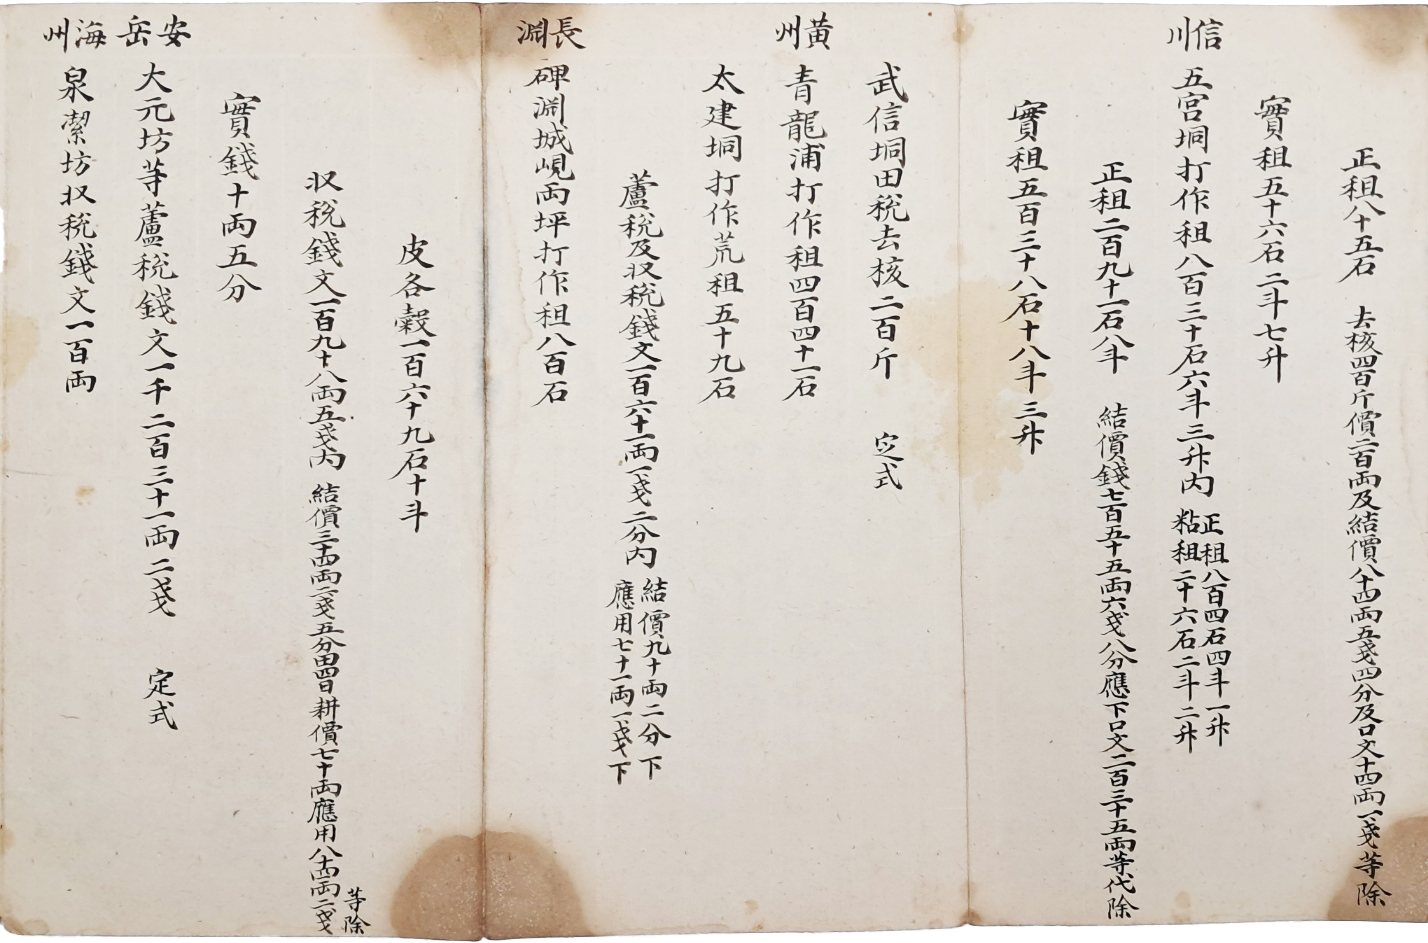 正租八十五石 去核四百斤價二百両及結價八十四両五戔四分及口文十四両一戔等除
實租五十六石二斗七升
信川
五宮垌打作租八百三十石六斗三升內 正租八百四石四斗一升
粘租二十六石二斗二升
正租二百九十一石八斗 結價錢七百五十五両六戔八分應下口文二百三十五両等代除
實租五百三十八石十八斗三升
武信垌田稅去核二百斤 定式
黃州
青龍浦打作租四百四十一石
太建垌打作荒租五十九石
蘆稅及収稅錢文一百六十一両一戔二分內 結價九十両二分下
應用七十一両一戔下
長淵
碑淵城峴両坪打作租八百石
皮各穀一百六十九石十斗
収稅錢文一百九十八両五戔內 結價三十四両二戔五分田四日耕價七十両應用八十四両二戔
等除
實錢十両五分
安岳
大元坊等蘆稅錢文一千二百三十一両二戔 定式
海州
泉潔坊収稅錢文一百両